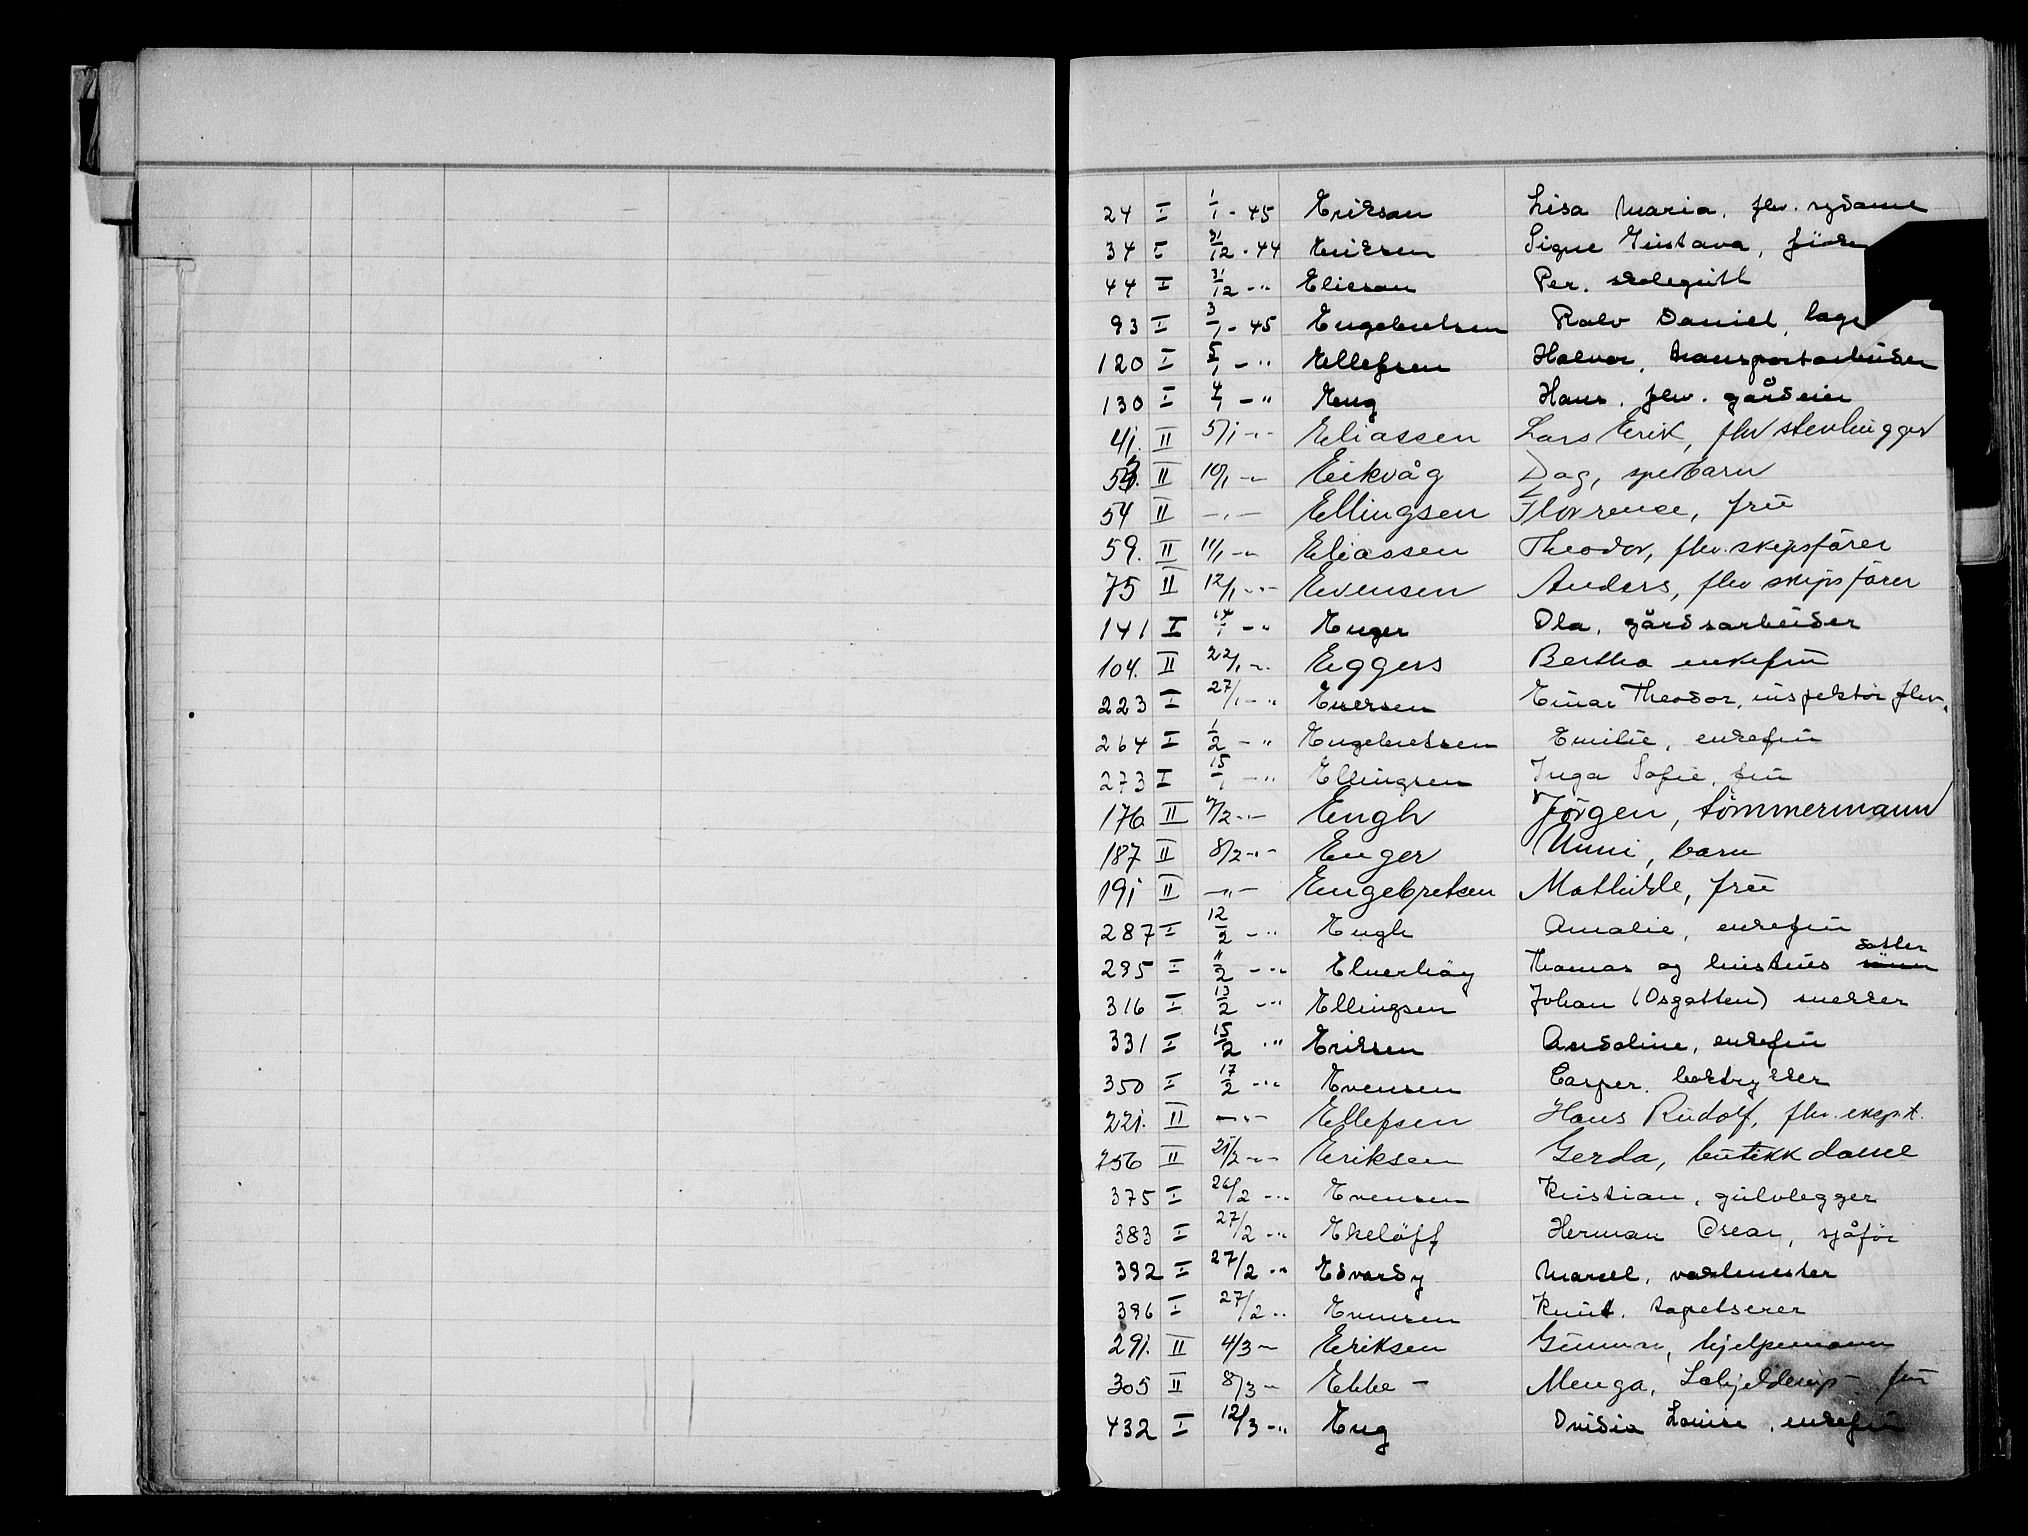 24 I 1/1 - 45 Erikson Lisa Maria, flv. sydame
34 I 31/12 - 44 Eriksen Signe Gustava,
44 I 31/12 - " Elieson Per, skolegutt
93 I 3/1 - 45 Engebretsen Ralv Daniel, lage
120 I 5/1 - " Ellefsen Halvor, transportarbeider
130 I 4/1 - " Eng Hans, flv. gårdeier
41. II 5/1 - " - Eliassen Lars Erik, flv stenhugger
53. II 10/1 - " - Eikvåg Dag, spebarn
54 II - " - Ellingsen Florence, frü
59. II 11/1 - " - Eliassen Theodor, flv. skipsfører
75 II 12/1 - " - Evensen Anders, flv skipsfører
141 I 14/1 - " Enger Ola, gårdsarbeider
104. II 22/1 - " Eggers Bertha enkefrü
223 I 27/1 - " Einar Theodor, inspektør flv.
264 I 1/2 - " Engebretsen Emilie, enkefrü
273 I 15/1 - " Ellingsen Inga Sofie, frü
176 II 7/2 - " - Engh Jørgen, tömmermann
187 II 8/2 - " - Enger Unni, barn
191 II - " - Engebretsen Mathilde, frü
287 I 12/2 - " Engh Amalie, enkefrü
295 I 11/2 - " Elverhöy Thomas og hustrus datter sönn
316 I 13/2 - " Ellingsen Johan (Osgatten) snekker
331 I 15/2 - " Eriksen Andoline, enkefrü
350 I 17/2 - " Evensen Casper, boktrykker
221. II - " - Ellefsen Hans Rudolf, flv. eksp.t.
256 II 21/2 - " - Eriksen Gerda, butikkdame
375 I 26/2 - " Evensen Kristian, gulvlegger
383 I 27/2 - " Ekelöff Herman Oscar, sjåfør
392 I 27/2 - " Edvardy Marcel, vaktmester
396 I 27/2 - " Evensen Knut, tapetserer
291. II 4/3 - Eriksen Gunnar, hjelpemann
305 II 8/3 - Ebbe - Menga, Schjelderup - frü
432 I 12/3 - " Eng Ovidia Louise, enkefrü